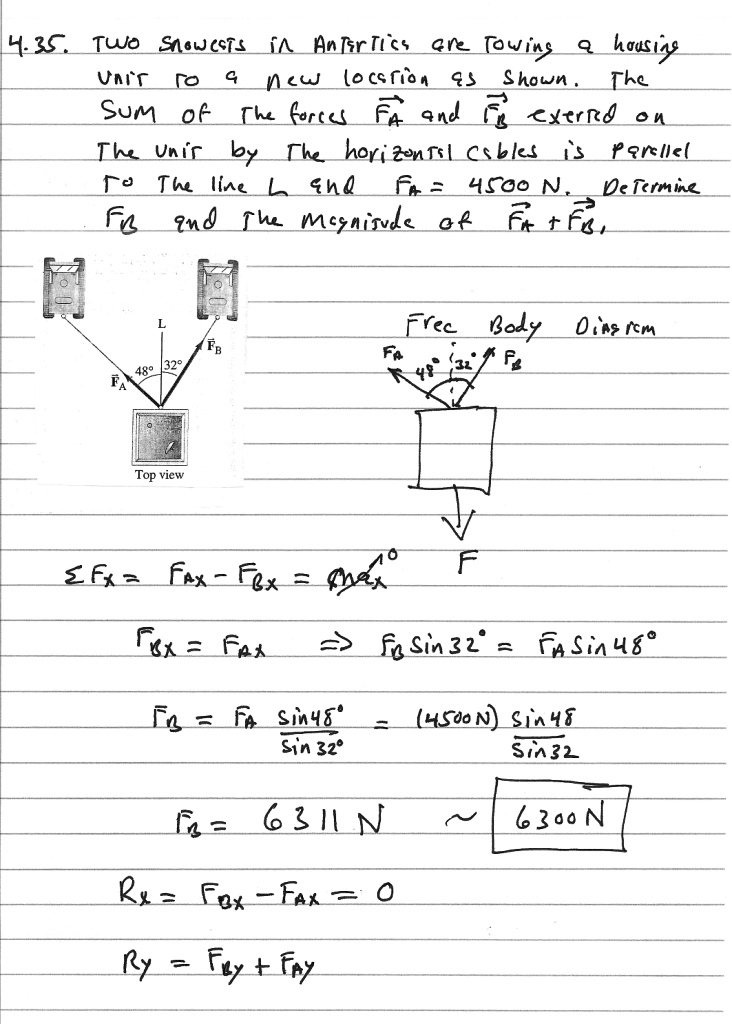 4.35. Two snowcats in Antartica are towing a housing
unit to a new location as shown. The
sum of the forces F⃗A and F⃗B exerted on
the unit by the horizontal cables is parallel
to the line L and FA = 4500 N. Determine
FB and the magnitude of F⃗A + F⃗B,
L
F⃗B
48° 32°
F⃗A
Top view
Free Body Diagram
FA 48° 32° FB
F
ΣFx = FAx - FBx = max 0
FBx = FAx => FB sin 32° = FA sin 48°
FB = FA sin 48° / sin 32° = (4500 N) sin 48 / sin 32
FB = 6311 N ~ 6300 N
Rx = FBx - FAx = 0
Ry = FBy + FAy